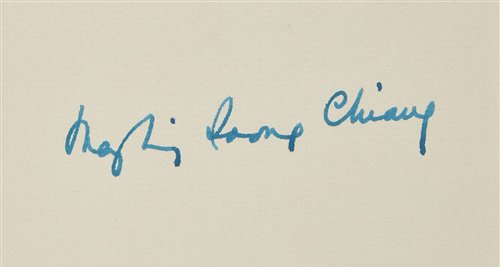 Mayling Soong Chiang